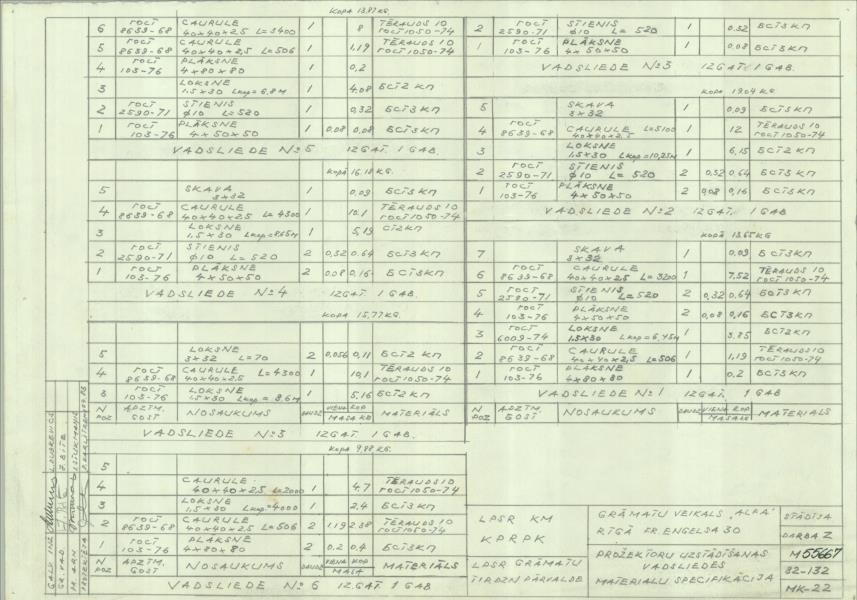 KOPĀ 13,87 KG.
6 ГОСТ 8639-68 CAURULE 40x40x2,5 L=3400 1 8 TĒRAUDS 10 ГОСТ 1050-74
5 ГОСТ 8639-68 CAURULE 40x40x2,5 L=506 1 1,19 TĒRAUDS 10 ГОСТ 1050-74
4 ГОСТ 103-76 PLĀKSNE 4x80x80 1 0,2
3 LOKSNE 1,5x30 Lкор=6,8M 1 4,08 БСТ2 КП
2 ГОСТ 2590-71 STIENIS ϕ10 L=520 1 0,32 БСТ3КП
1 ГОСТ 103-76 PLĀKSNE 4x50x50 1 0,08 0,08 БСТ3КП
VADSLIEDE Nº5 IZGAT. 1 GAB.
KOPĀ 16,18 KG.
5 SKAVA 3x32 1 0,09 БСТ3КП
4 ГОСТ 8639-68 CAURULE 40x40x2,5 L=4300 1 10,1 TĒRAUDS 10 ГОСТ 1050-74
3 LOKSNE 1,5x30 Lкор=8,65M 1 5,19 СТ2КП
2 ГОСТ 2590-71 STIENIS ϕ10 L=520 2 0,32 0,64 БСТ3КП
1 ГОСТ 103-76 PLĀKSNE 4x50x50 2 0,08 0,16 БСТ3КП
VADSLIEDE Nº4 IZGAT. 1 GAB.
KOPĀ 15,77 KG.
5 LOKSNE 3x32 L=70 2 0,056 0,11 БСТ2 КП
4 ГОСТ 8639-68 CAURULE 40x40x2,5 L=4300 1 10,1 TĒRAUDS 10 ГОСТ 1050-74
3 ГОСТ LOKSNE 1,5x30 Lкор=8,6M 1 5,16 БСТ2 КП
N POZ APZĪM. GOST NOSAUKUMS DAUDZ VIENA KOP MASA KG MATERIĀLS
VADSLIEDE Nº3 IZGAT. 1 GAB.
KOPĀ 9,88 KG.
5
4 CAURULE 40x40x2,5 L=2000 1 4,7 TĒRAUDS 10 ГОСТ 1050-74
3 LOKSNE 1,5x30 Lкор=4000 1 2,4 БСТ3КП
2 ГОСТ 8639-68 CAURULE 40x40x2,5 L=506 2 1,19 2,38 TĒRAUDS 10 ГОСТ 1050-74
1 ГОСТ 103-76 PLĀKSNE 4x80x80 2 0,2 0,4 БСТ3КП
N POZ APZĪM. GOST NOSAUKUMS DAUDZ VIENA KOP MASA MATERIĀLS
VADSLIEDE Nº 6 IZGAT. 1 GAB
2 ГОСТ 2590-71 STIENIS ϕ10 L=520 1 0,32 БСТ3КП
1 ГОСТ 103-76 PLĀKSNE 4x50x50 1 0,08 БСТ3КП
VADSLIEDE Nº3 IZGAT. 1 GAB.
KOPĀ 19,04 KG
5 SKAVA 3x32 1 0,09 БСТ3КП
4 ГОСТ 8639-68 CAURULE 40x40x2,5 L=5100 1 12 TĒRAUDS 10 ГОСТ 1050-74
3 LOKSNE 1,5x30 Lкор=10,25M 1 6,15 БСТ2 КП
2 ГОСТ 2590-71 STIENIS ϕ10 L=520 2 0,32 0,64 БСТ3КП
1 ГОСТ 103-76 PLĀKSNE 4x50x50 2 0,08 0,16 БСТ3КП
VADSLIEDE Nº2 IZGAT. 1 GAB
KOPĀ 13,65 KG
7 SKAVA 3x32 1 0,09 БСТ3КП
6 ГОСТ 8639-68 CAURULE 40x40x2,5 L=3200 1 7,52 TĒRAUDS 10 ГОСТ 1050-74
5 ГОСТ 2590-71 STIENIS ϕ10 L=520 2 0,32 0,64 БСТ3КП
4 ГОСТ 103-76 PLĀKSNE 4x50x50 2 0,08 0,16 БСТ3КП
3 ГОСТ 6009-74 LOKSNE 1,5x30 Lкор=6,45M 1 3,85 БСТ2КП
2 ГОСТ 8639-68 CAURULE 40x40x2,5 L=506 1 1,19 TĒRAUDS 10 ГОСТ 1050-74
1 ГОСТ 103-76 PLĀKSNE 4x80x80 1 0,2 БСТ3КП
VADSLIEDE Nº1 IZGAT. 1 GAB
N POZ APZĪM. GOST NOSAUKUMS DAUDZ VIENA KOP MASA KG MATERIĀLS
LPSR KM
KPRPK
LPSR GRĀMATU TIRDZN PĀRVALDE
GRĀMATU VEIKALS „ALFA"
RĪGĀ FR. ENGELSA 30
PROŽEKTORU UZSTĀDĪŠANAS
VADSLIEDES
MATERIĀLU SPECIFIKĀCIJA
STĀDIJA
DARBA Z
M 55667
82-132
MK-22
GALV. INŽ.
GR. VAD. J. BITE
M. ARH.